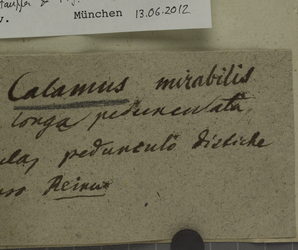 v. München 13.06.2012
Calamus mirabilis
longa pedunculata
pedunculo distiche
Reinw